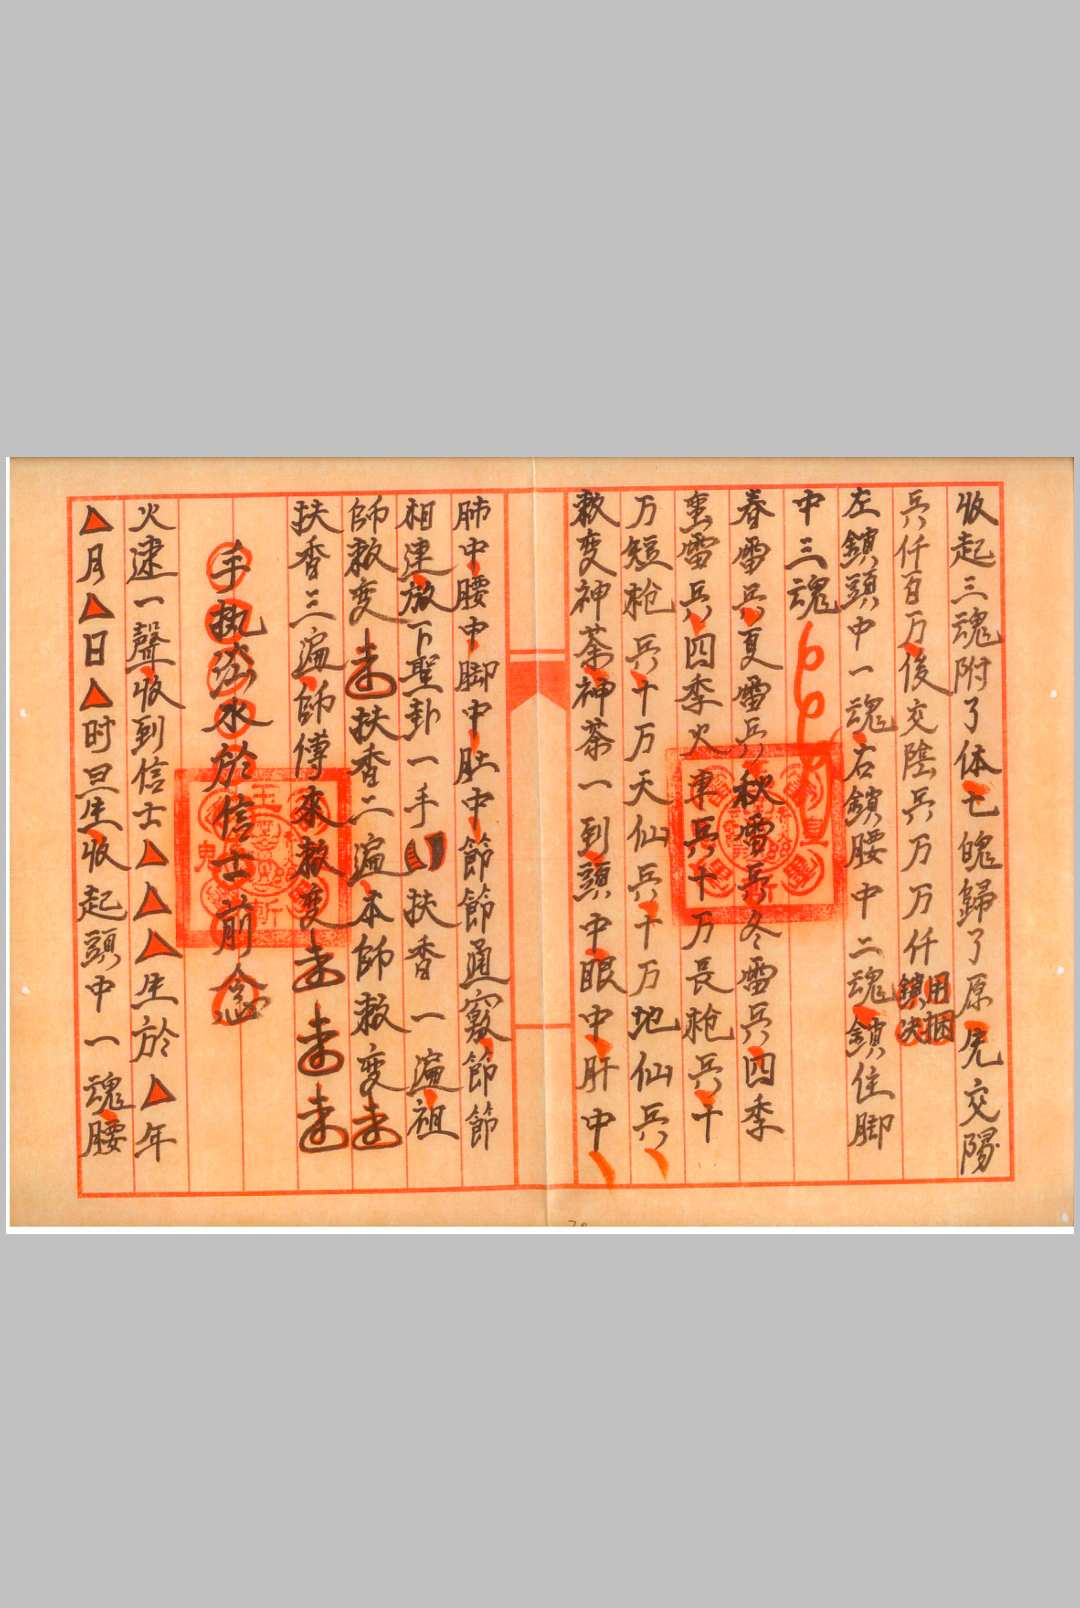 收起三魂附了体七魄歸了原先交陽
兵仟百万後交陰兵万万仟
用捆
鎖决
左鎖頭中一魂右鎖腰中二魂鎖住脚
中三魂
春雷兵夏雷兵秋雷兵冬雷兵四季
雷兵四季火車兵十万長枪兵十
万短枪兵十万天仙兵十万地仙兵
敕变神茶神茶一到頭中眼中肝中
肺中腰中脚中肚中節節通竅節節
相連放下聖卦一手扶香一遍祖
師敕变扶香二遍本師敕变
扶香三遍師傅來敕变
手执法水於信士前念
火速一聲收到信士△△△生於△年
△月△日△时旦生收起頭中一魂腰